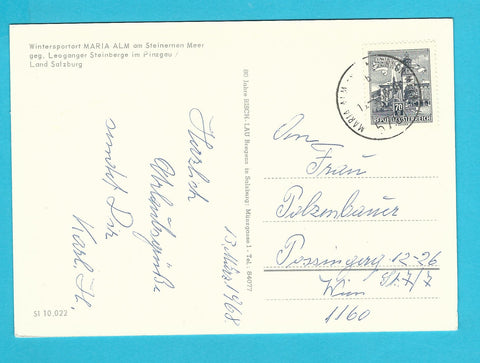 Wintersportort MARIA ALM am Steinernen Meer
geg. Leoganger Steinberge im Pinzgau /
Land Salzburg
80 Jahre RISCH-LAU Bregenz in Salzburg: Münzgasse 1 - Tel. 84077
Herzlich
Urlaubsgrüße
sendet Dir
Karl. H.
13. März 1968
MARIA ALM
70
REPUBLIK ÖSTERREICH
An
Frau
Polzenbauer
Possingerg. 12-26
St. 7/7
Wien
1160
SI 10.022